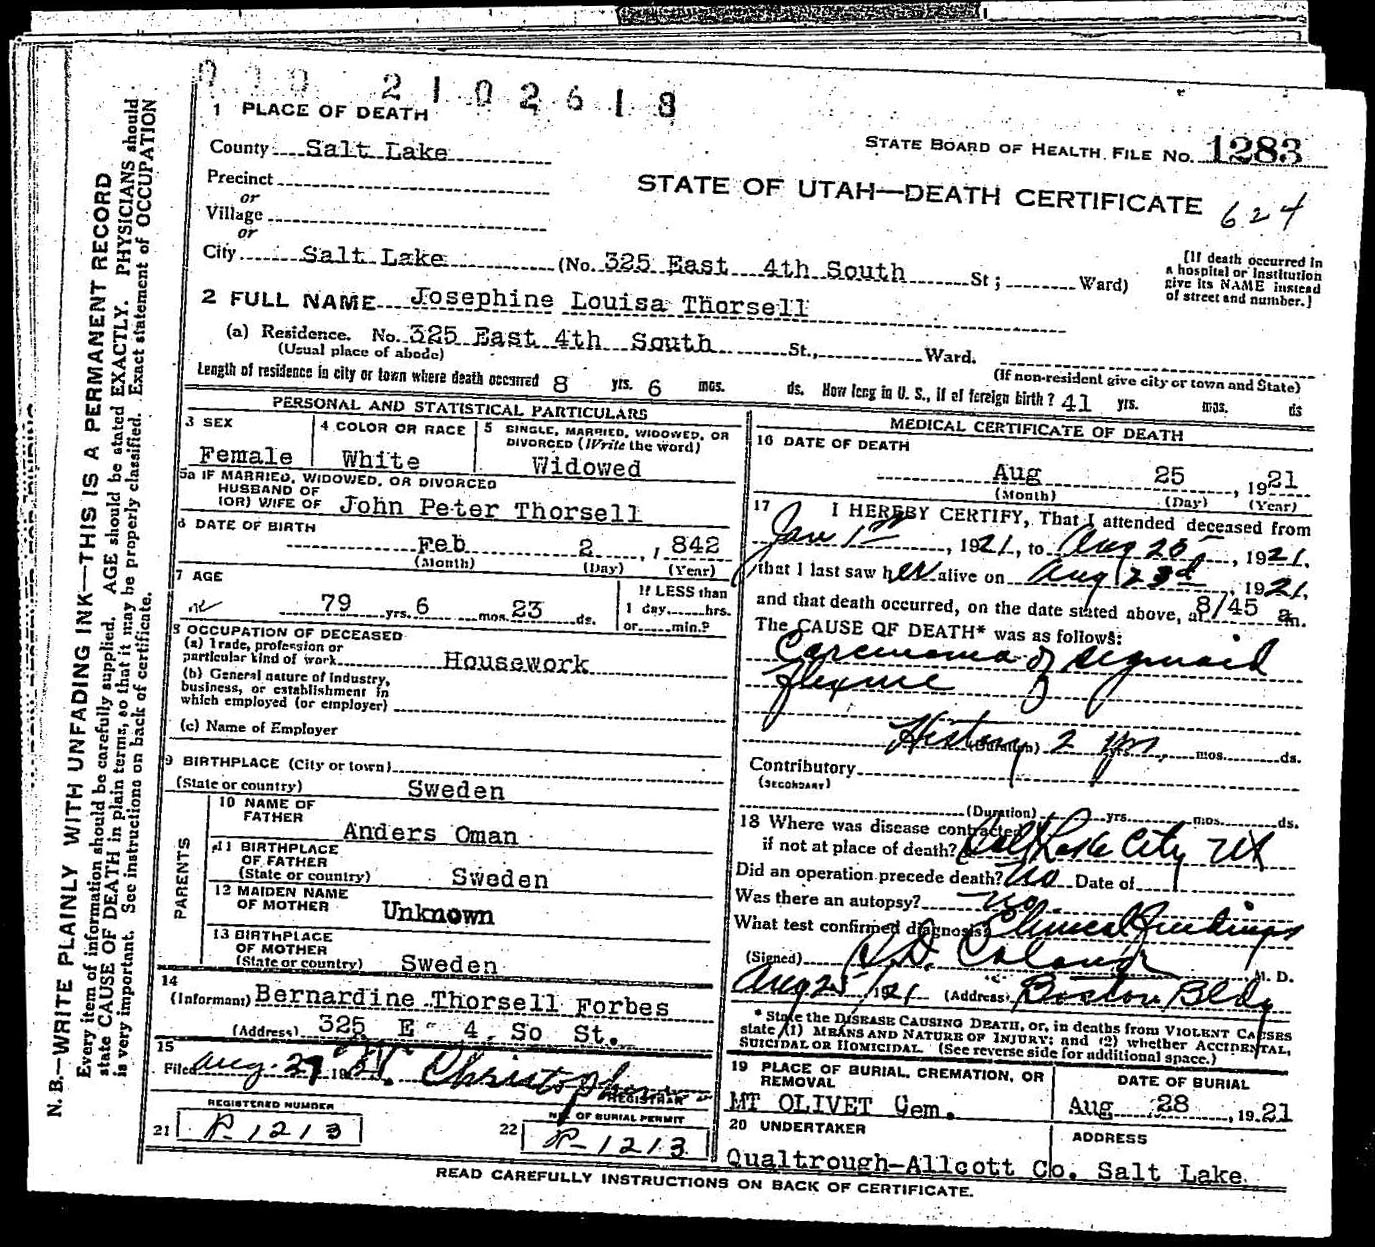 2102618
1 PLACE OF DEATH
STATE BOARD OF HEALTH FILE NO. 1283
County Salt Lake
STATE OF UTAH—DEATH CERTIFICATE 624
Precinct
or
Village
or
City Salt Lake (No. 325 East 4th South St; Ward)
[If death occurred in
a hospital or institution
give its NAME instead
of street and number.]
2 FULL NAME Josephine Louisa Thorsell
(a) Residence. No. 325 East 4th South St., Ward.
(Usual place of abode)
(If non-resident give city or town and State)
Length of residence in city or town where death occurred 8 yrs. 6 mos. ds. How long in U. S., if of foreign birth? 41 yrs. mos. ds
PERSONAL AND STATISTICAL PARTICULARS
3 SEX
Female
4 COLOR OR RACE
White
5 SINGLE, MARRIED, WIDOWED, OR
DIVORCED (Write the word)
Widowed
5a IF MARRIED, WIDOWED, OR DIVORCED
HUSBAND OF
(OR) WIFE OF John Peter Thorsell
6 DATE OF BIRTH
Feb 2, 1842
(Month) (Day) (Year)
7 AGE
79 yrs. 6 mos. 23 ds.
If LESS than
1 day......hrs.
or......min.?
8 OCCUPATION OF DECEASED
(a) Trade, profession or
particular kind of work Housework
(b) General nature of industry,
business, or establishment in
which employed (or employer)
(c) Name of Employer
9 BIRTHPLACE (City or town)
(State or country) Sweden
PARENTS
10 NAME OF
FATHER
Anders Oman
11 BIRTHPLACE
OF FATHER
(State or country) Sweden
12 MAIDEN NAME
OF MOTHER Unknown
13 BIRTHPLACE
OF MOTHER
(State or country) Sweden
14
(Informant) Bernardine Thorsell Forbes
(Address) 325 E 4 So St.
15
Filed Aug. 27 192 Christopherson
REGISTRAR
REGISTERED NUMBER
21 P-1213
NO. OF BURIAL PERMIT
22 P-1213
MEDICAL CERTIFICATE OF DEATH
16 DATE OF DEATH
Aug 25, 1921
(Month) (Day) (Year)
17 I HEREBY CERTIFY, That I attended deceased from
Jan 1st, 1921, to Aug 25, 1921.
that I last saw her alive on Aug 23d, 1921,
and that death occurred, on the date stated above, at 8/45 a m.
The CAUSE OF DEATH* was as follows:
Carcinoma of sigmoid
flexure
History (Duration) 2 yrs. mos. ds.
Contributory
(SECONDARY)
(Duration) yrs. mos. ds.
18 Where was disease contracted
if not at place of death? Salt Lake City Ut
Did an operation precede death? No Date of
Was there an autopsy? No.
What test confirmed diagnosis? Clinical Findings
(Signed) M. D.
Aug 25/1921 (Address) Boston Bldg
* State the DISEASE CAUSING DEATH, or, in deaths from VIOLENT CAUSES
state (1) MEANS AND NATURE OF INJURY; and (2) whether ACCIDENTAL,
SUICIDAL OR HOMICIDAL. (See reverse side for additional space.)
19 PLACE OF BURIAL, CREMATION, OR
REMOVAL
MT OLIVET Cem.
DATE OF BURIAL
Aug 28, 1921
20 UNDERTAKER
Qualtrough-Allcott Co.
ADDRESS
Salt Lake
READ CAREFULLY INSTRUCTIONS ON BACK OF CERTIFICATE.
N. B.—WRITE PLAINLY WITH UNFADING INK—THIS IS A PERMANENT RECORD
Every item of information should be carefully supplied. AGE should be stated EXACTLY. PHYSICIANS should
state CAUSE OF DEATH in plain terms, so that it may be properly classified. Exact statement of OCCUPATION
is very important. See instructions on back of certificate.